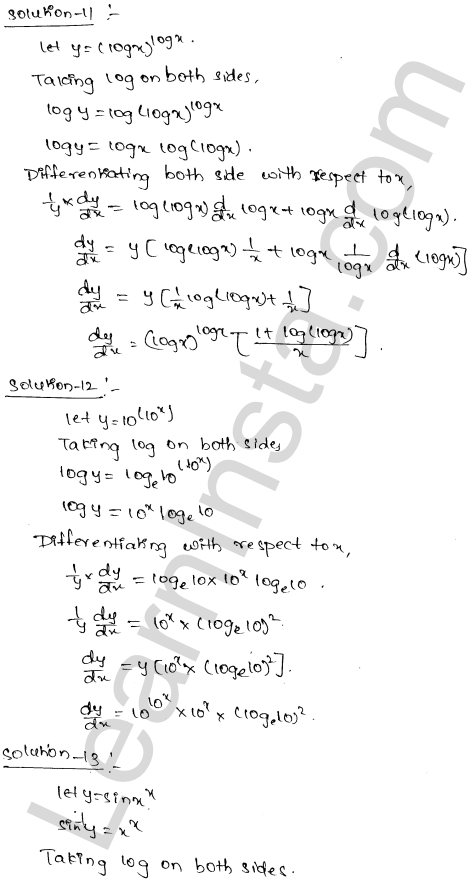 Solution-11 :-
let y = (logx)^logx.
Taking log on both sides,
log y = log (logx)^logx
logy = logx log(logx).
Differentiating both side with respect to x,
1/y × dy/dx = log(logx) d/dx logx + logx d/dx log(logx).
dy/dx = y [ log(logx) 1/x + logx 1/logx d/dx (logx)]
dy/dx = y [1/x log(logx) + 1/x]
dy/dx = (logx)^logx [ (1 + log(logx))/x ].
Solution-12 :-
let y = 10^(10^x)
Taking log on both sides
log y = log_e 10^(10^x)
log y = 10^x log_e 10
Differentiating with respect to x,
1/y × dy/dx = log_e 10 × 10^x log_e 10.
1/y dy/dx = 10^x × (log_e 10)^2.
dy/dx = y [10^x × (log_e 10)^2].
dy/dx = 10^10^x × 10^x × (log_e 10)^2.
Solution-13 :-
let y = sinx^x
sin^-1 y = x^x
Taking log on both sides.
LearnInsta.com